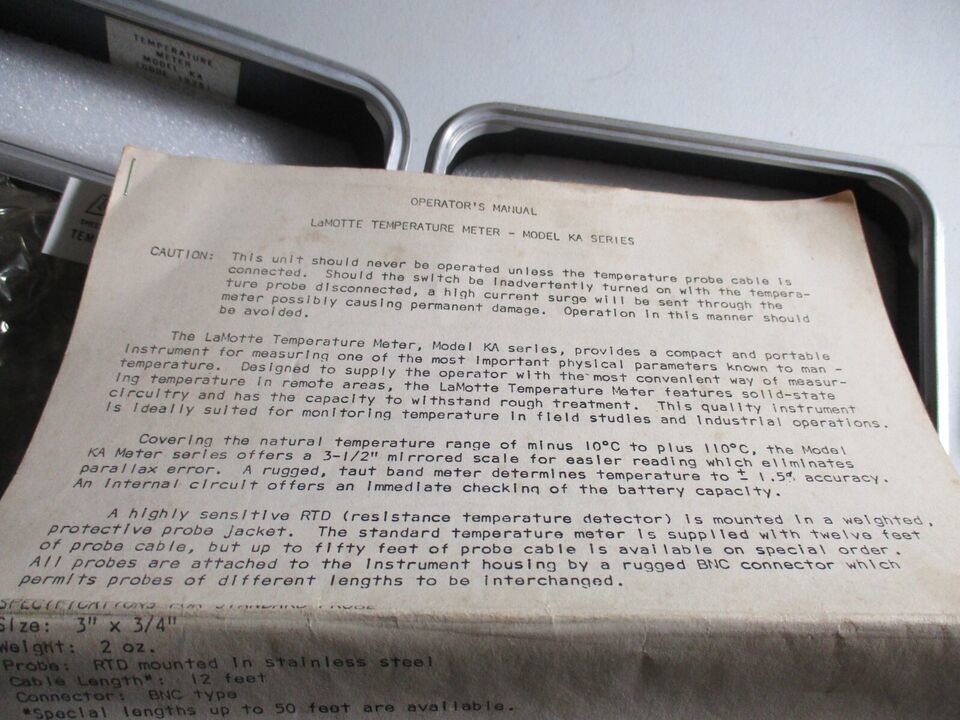 TEMPERATURE
METER
MODEL KA
TEM
OPERATOR'S MANUAL
LaMOTTE TEMPERATURE METER - MODEL KA SERIES
CAUTION: This unit should never be operated unless the temperature probe cable is
connected. Should the switch be inadvertently turned on with the tempera-
ture probe disconnected, a high current surge will be sent through the
meter possibly causing permanent damage. Operation in this manner should
be avoided.
The LaMotte Temperature Meter, Model KA series, provides a compact and portable
instrument for measuring one of the most important physical parameters known to man -
temperature. Designed to supply the operator with the most convenient way of measur-
ing temperature in remote areas, the LaMotte Temperature Meter features solid-state
circuitry and has the capacity to withstand rough treatment. This quality instrument
is ideally suited for monitoring temperature in field studies and industrial operations.
Covering the natural temperature range of minus 10°C to plus 110°C, the Model
KA Meter series offers a 3-1/2" mirrored scale for easier reading which eliminates
parallax error. A rugged, taut band meter determines temperature to ± 1.5% accuracy.
An internal circuit offers an immediate checking of the battery capacity.
A highly sensitive RTD (resistance temperature detector) is mounted in a weighted,
protective probe jacket. The standard temperature meter is supplied with twelve feet
of probe cable, but up to fifty feet of probe cable is available on special order.
All probes are attached to the instrument housing by a rugged BNC connector which
permits probes of different lengths to be interchanged.
SPECIFICATIONS FOR STANDARD PROBE
Size: 3" x 3/4"
Weight: 2 oz.
Probe: RTD mounted in stainless steel
Cable Length*: 12 feet
Connector: BNC type
*Special lengths up to 50 feet are available.